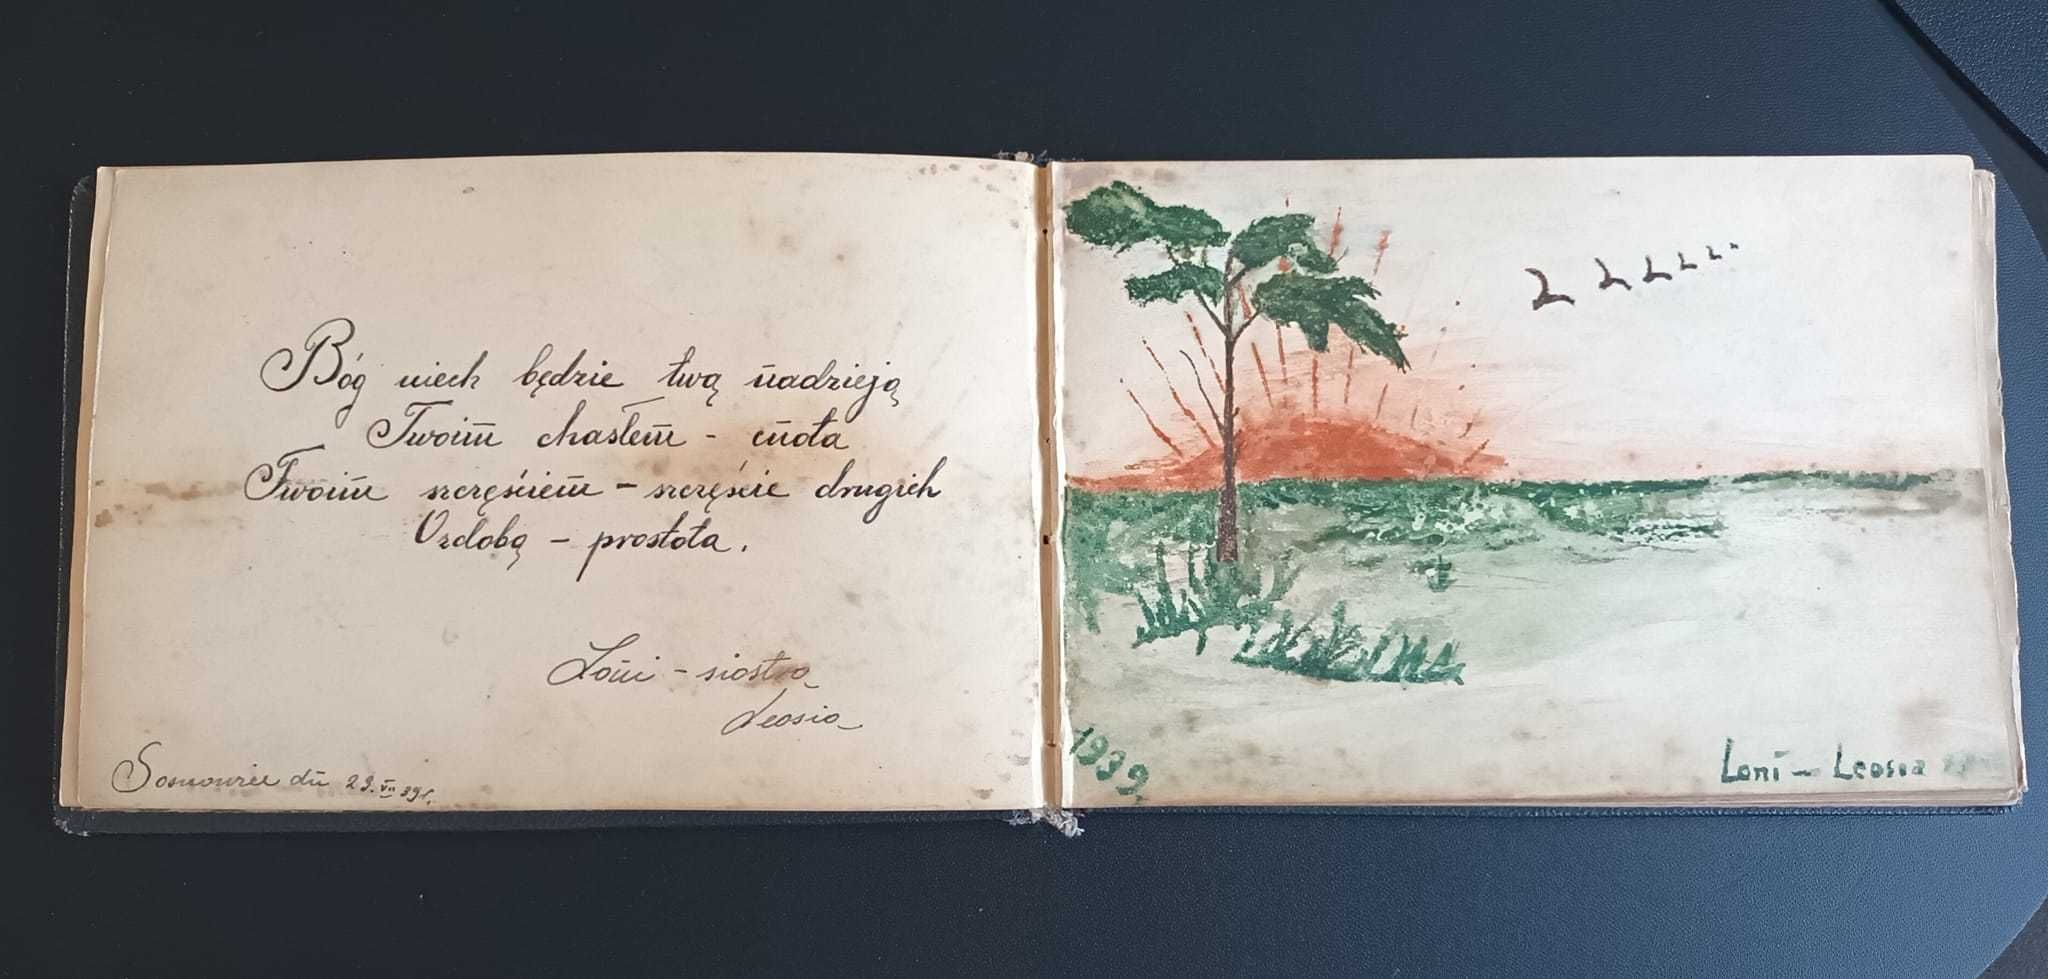 Bóg niech będzie twą nadzieją
Twoim hasłem - cnota
Twoim szczęściem - szczęście drugich
Ozdobą - prostota.
Loni - siostra
Leosia
Sosnowiec dn 23.VII 39r.
1939
Loni - Leosia